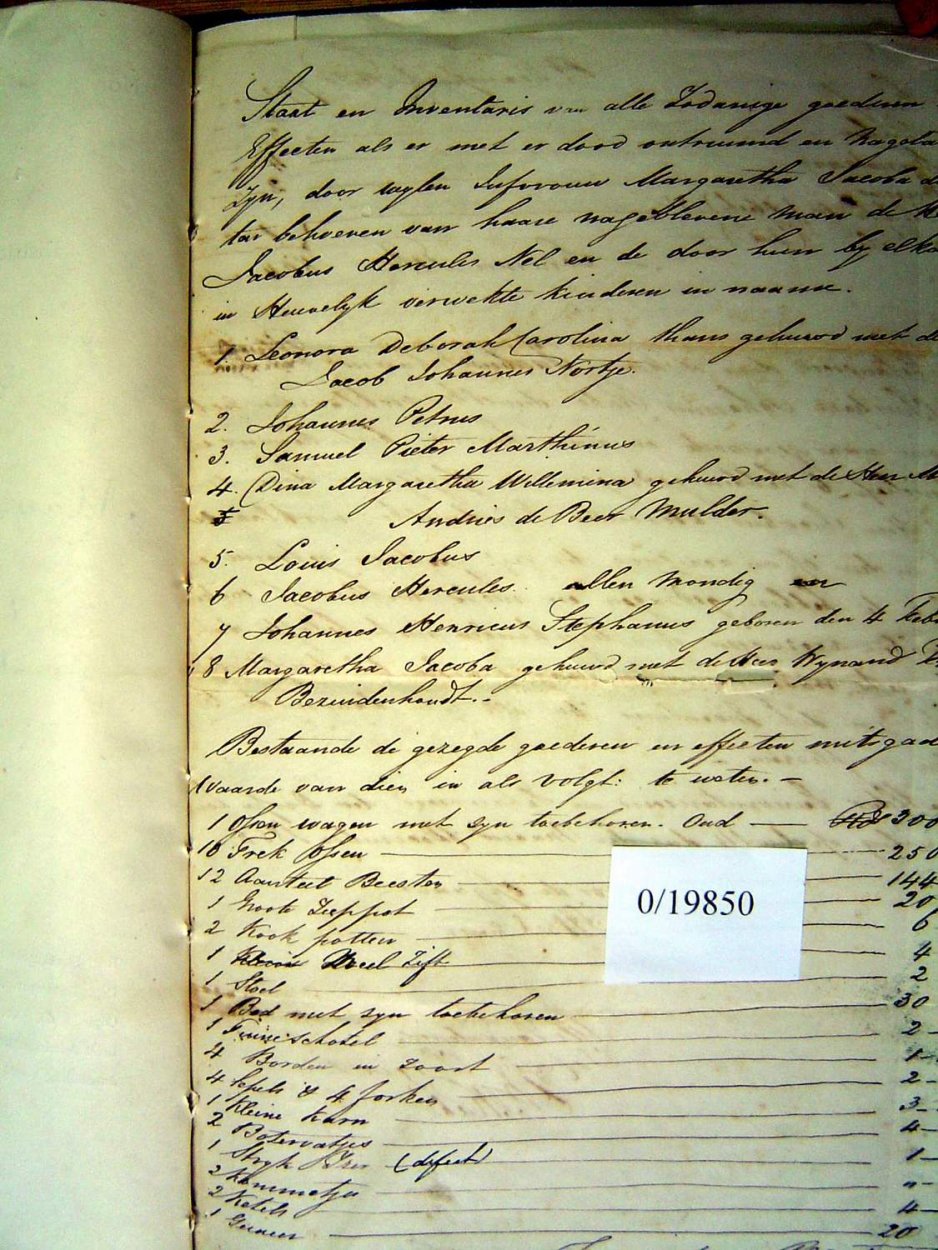 Staat en Inventaris van alle Zodanige goederen
Effecten als er met er dood ontruimd en nagela
Zyn, door wylen Juforouw Margaretha Jacoba d
ten behoeven van haare nageblevene man de H
Jacobus Hercules Nel en de door hun by elka
in Heuwelyk verwekte kinderen in naame.
1. Leonora Deborah Carolina thans gehuwd met de
Jacob Johannes Nortje.
2. Johannes Petrus
3. Samuel Pieter Marthinus
4. Dina Margaretha Willemina gehuwd met de Heer M
5 Andries de Beer Mulder.
5. Louis Jacobus
6 Jacobus Hercules allen mondig en
7 Johannes Henricus Stephanus geboren den 4 Feb
8 Margaretha Jacoba gehuwd met de Heer Wynand
Bezuidenhoudt.-
Bestaande de gezegde goederen en effecten mitsgad
waarde van dien in als volgt: te weten. -
1 Ossen wagen met zyn toebehoren. Oud — 300
10 Trek Ossen — 250
12 Aanteel Beesten — 144
1 Groote Zeeppot — 20
2 Kook potten — 6
1 Meel Zift — 4
1 Stoel — 2
1 Bed met zyn toebehoren — 30
1 schotel — 2-
4 Borden in zoort — 1-
4 Lepels & 4 forken — 2-
1 Kleine Karn — 3-
2 Botervatjes — 4-
1 Stryk Yzer (defect) — 1-
2 Kommetjes — "-
2 Ketels — 4-
1 Geweer — 20
0/19850